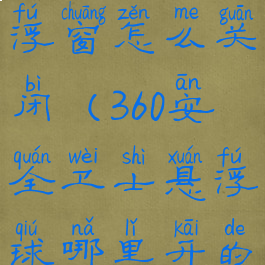 fú chuāng zěn me guān
浮窗怎么关
bì ān
闭（360安
quán wèi shì xuán fú
全卫士悬浮
qiú nǎ lǐ kāi de
球哪里开的